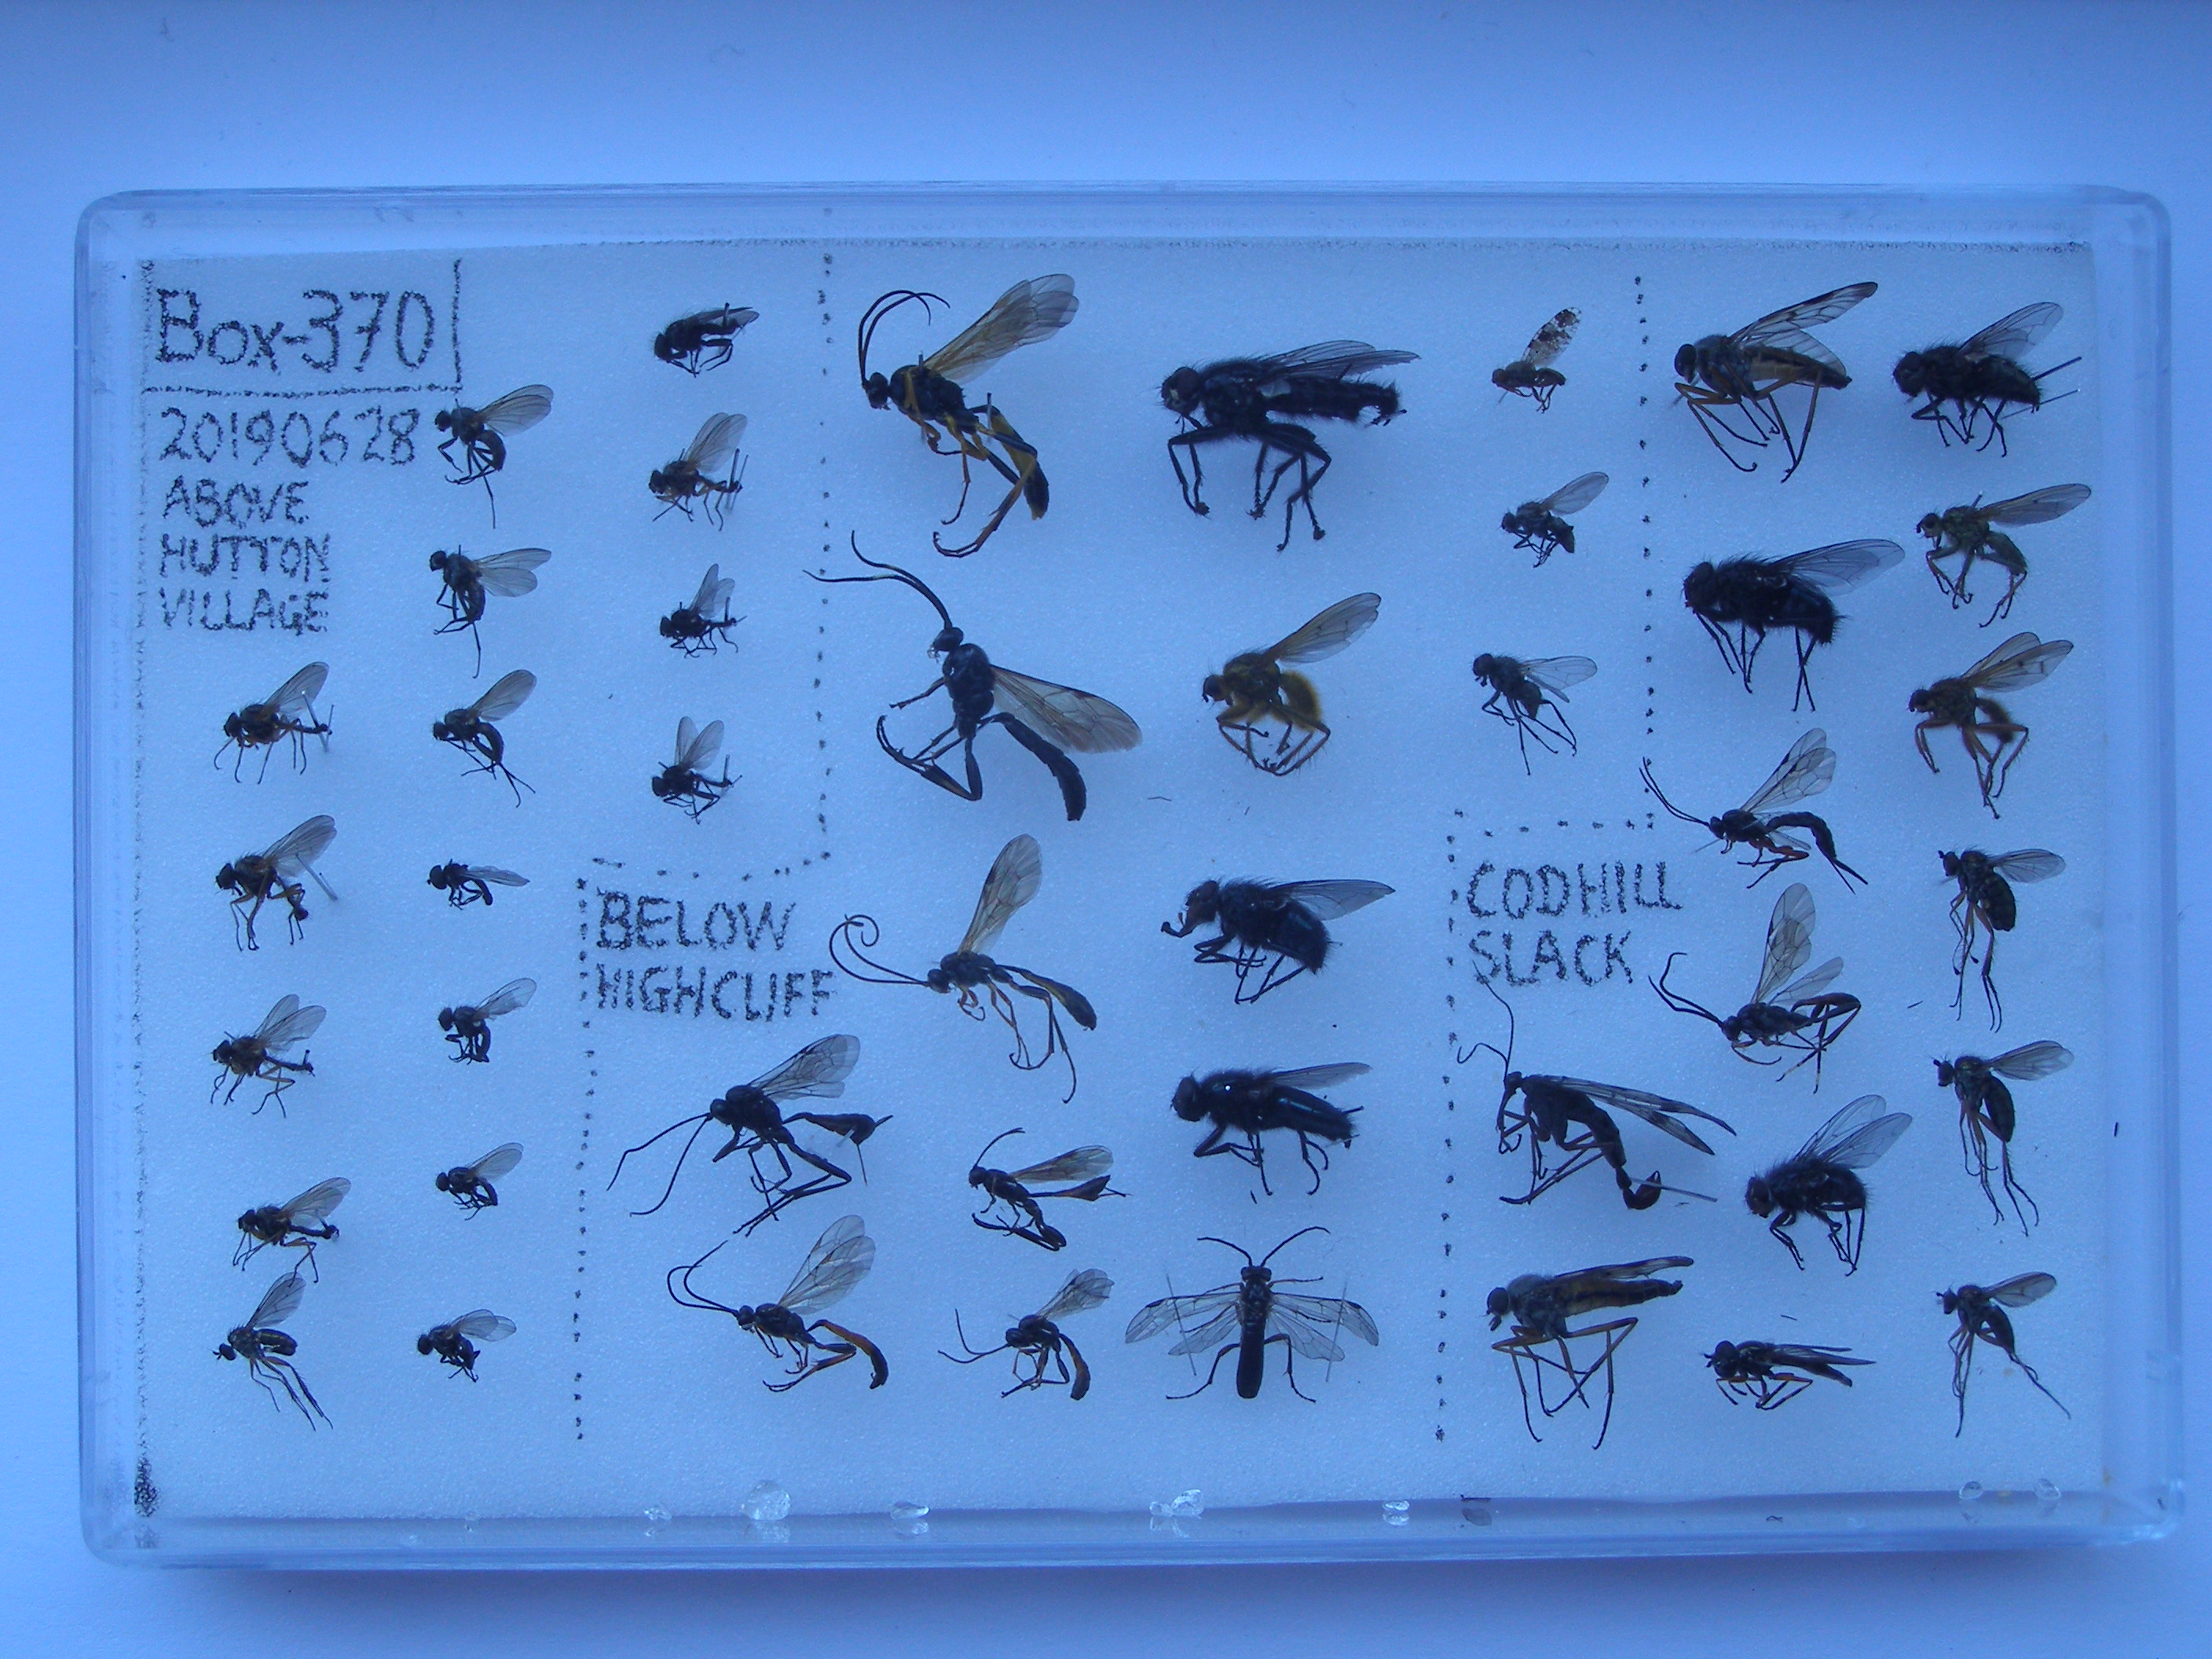 Box-370
20190628
ABOVE
HUTTON
VILLAGE
BELOW
HIGHCLIFF
CODHILL
SLACK